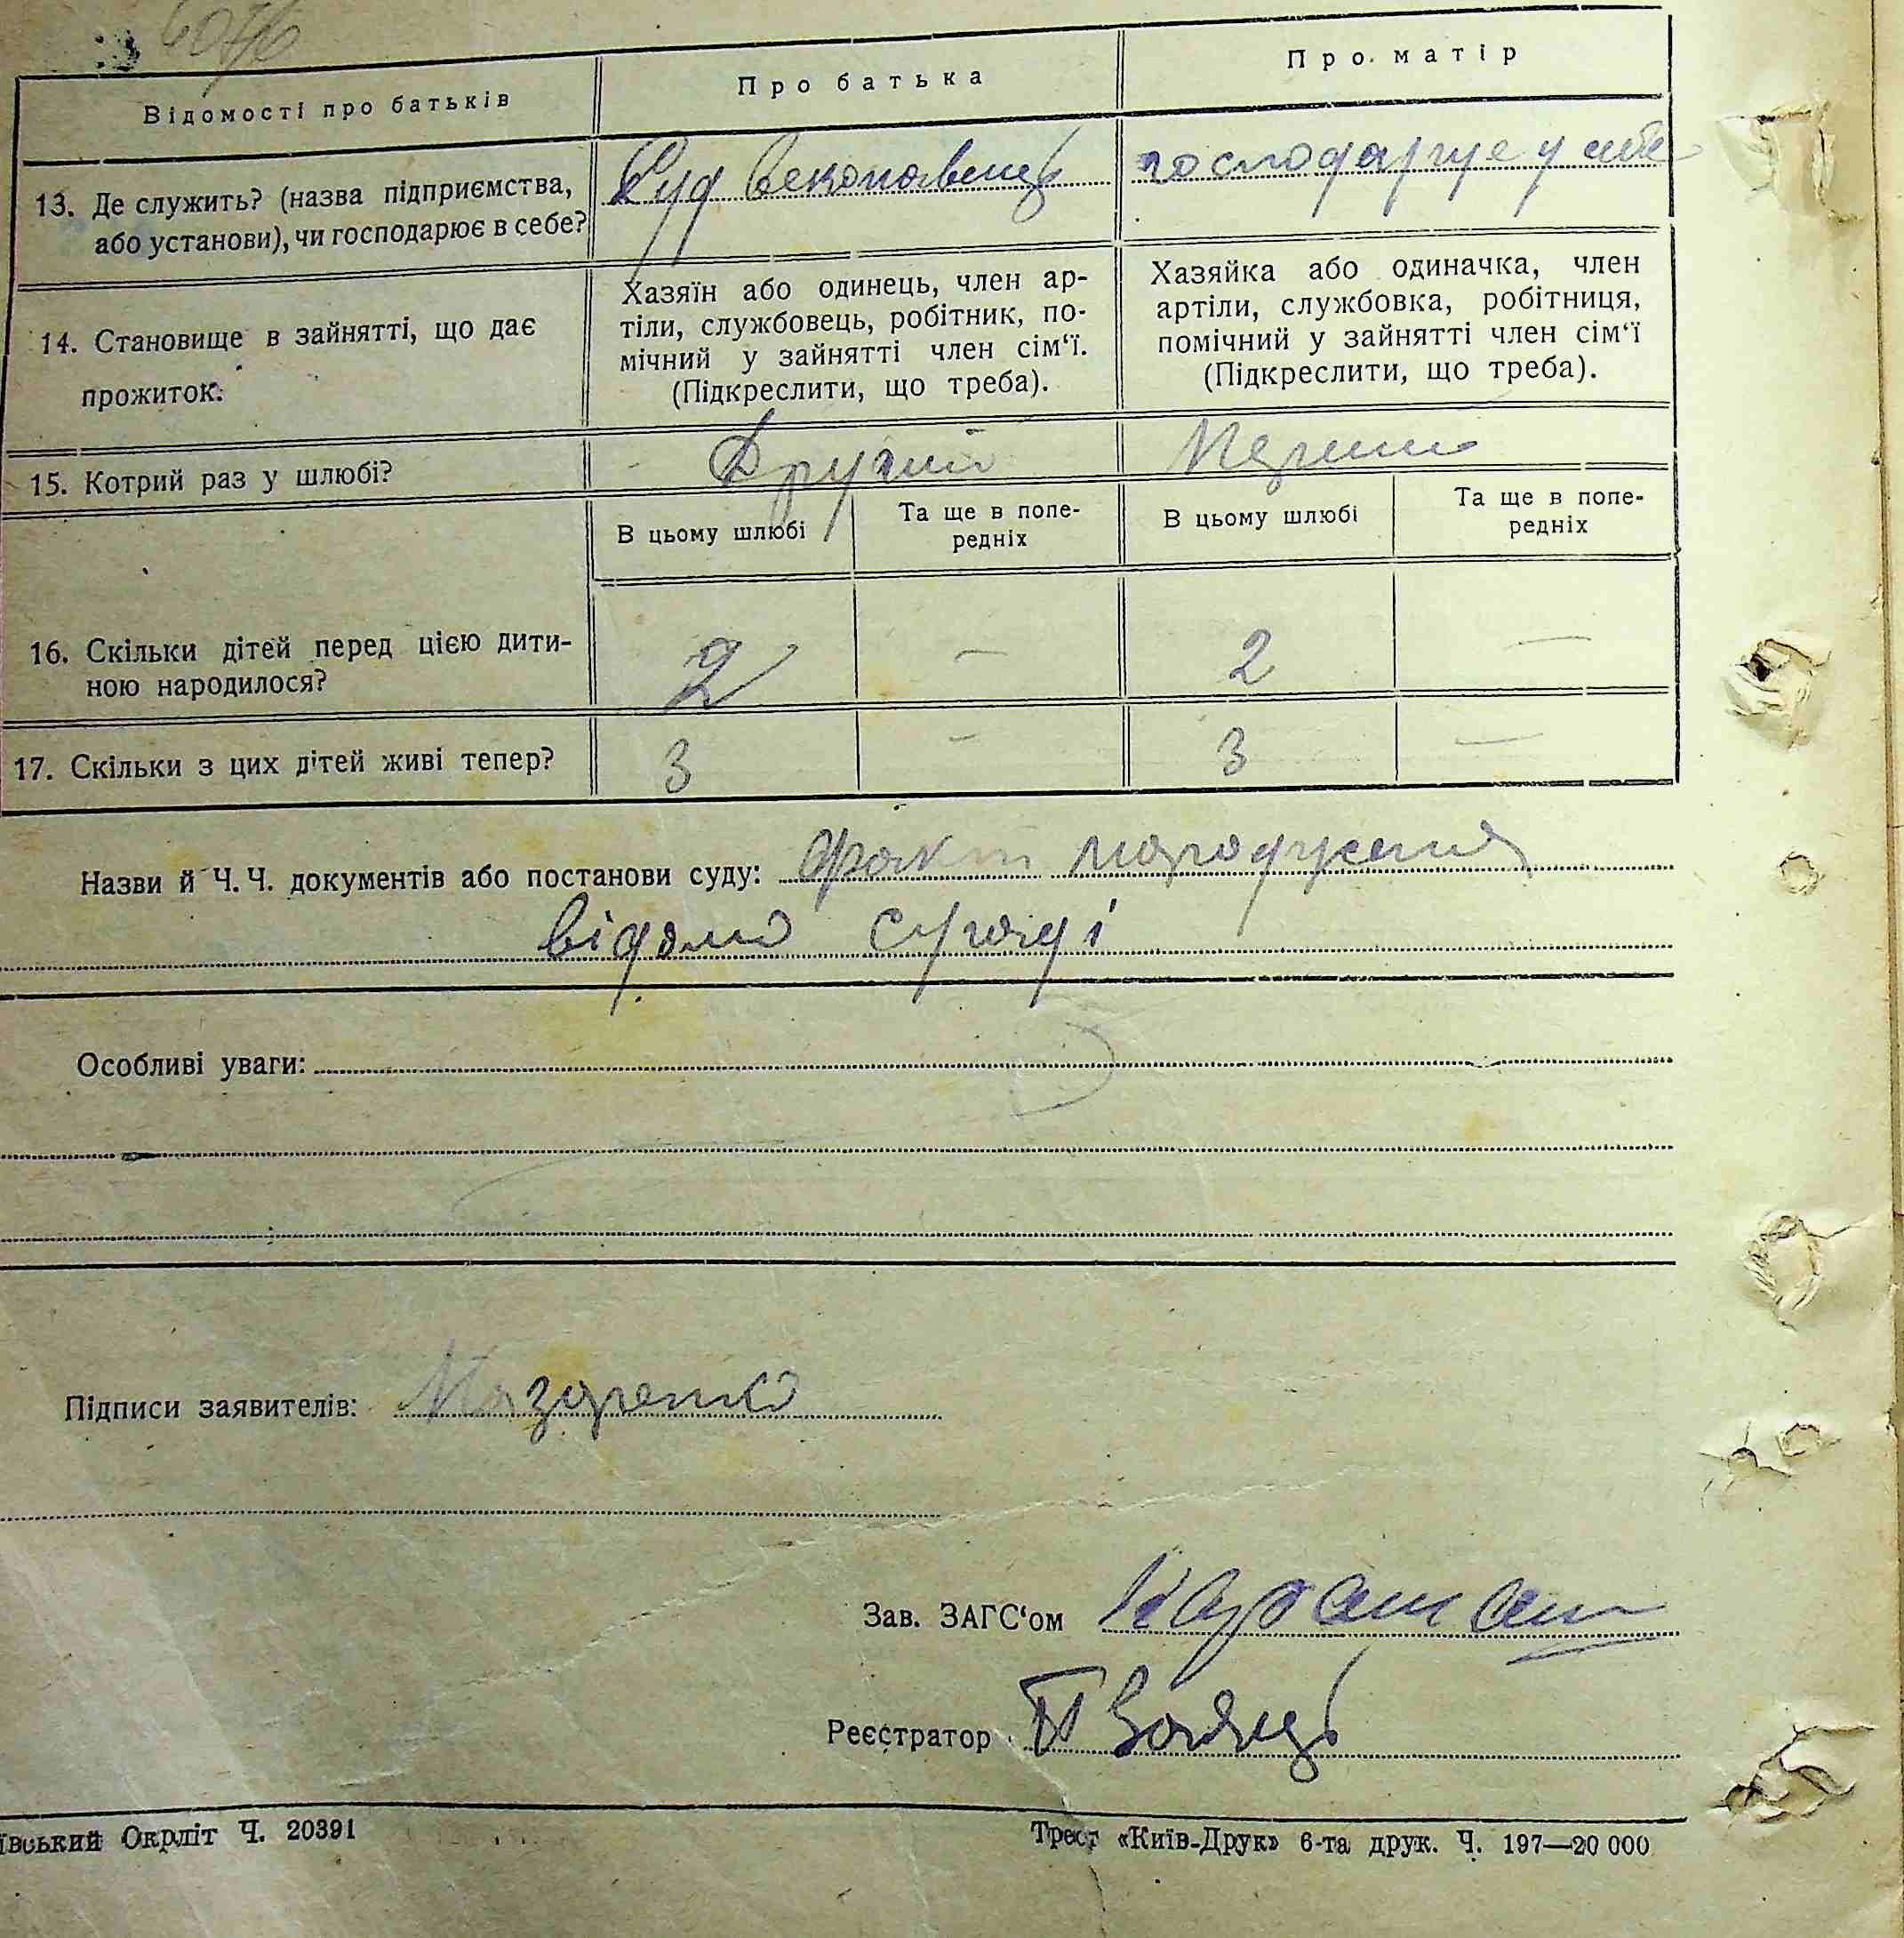 Відомості про батьків
Про батька
Про матір
13. Де служить? (назва підприємства,
або установи), чи господарює в себе?
Суд виконавець
господарує у себе
14. Становище в зайнятті, що дає
прожиток:
Хазяїн або одинець, член ар-
тіли, службовець, робітник, по-
мічний у зайнятті член сім‘ї.
(Підкреслити, що треба).
Хазяйка або одиначка, член
артіли, службовка, робітниця,
помічний у зайнятті член сім‘ї
(Підкреслити, що треба).
15. Котрий раз у шлюбі?
Другий
В цьому шлюбі
Та ще в попе-
редніх
В цьому шлюбі
Та ще в попе-
редніх
16. Скільки дітей перед цією дити-
ною народилося?
2 — 2 —
17. Скільки з цих дітей живі тепер?
3 — 3 —
Назви й Ч. Ч. документів або постанови суду: факт народження
відомо
Особливі уваги:
Підписи заявителів: Назаренко
Зав. ЗАГС‘ом
Реєстратор
ївський Окрліт Ч. 20391
Трест «Київ-Друк» 6-та друк. Ч. 197—20 000